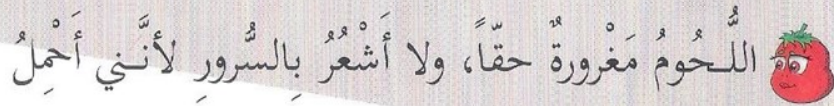 اللُّحُومُ مَغْرورةٌ حقّاً، ولا أَشْعُرُ بِالسُّرورِ لأنَّني أَحْمِلُ